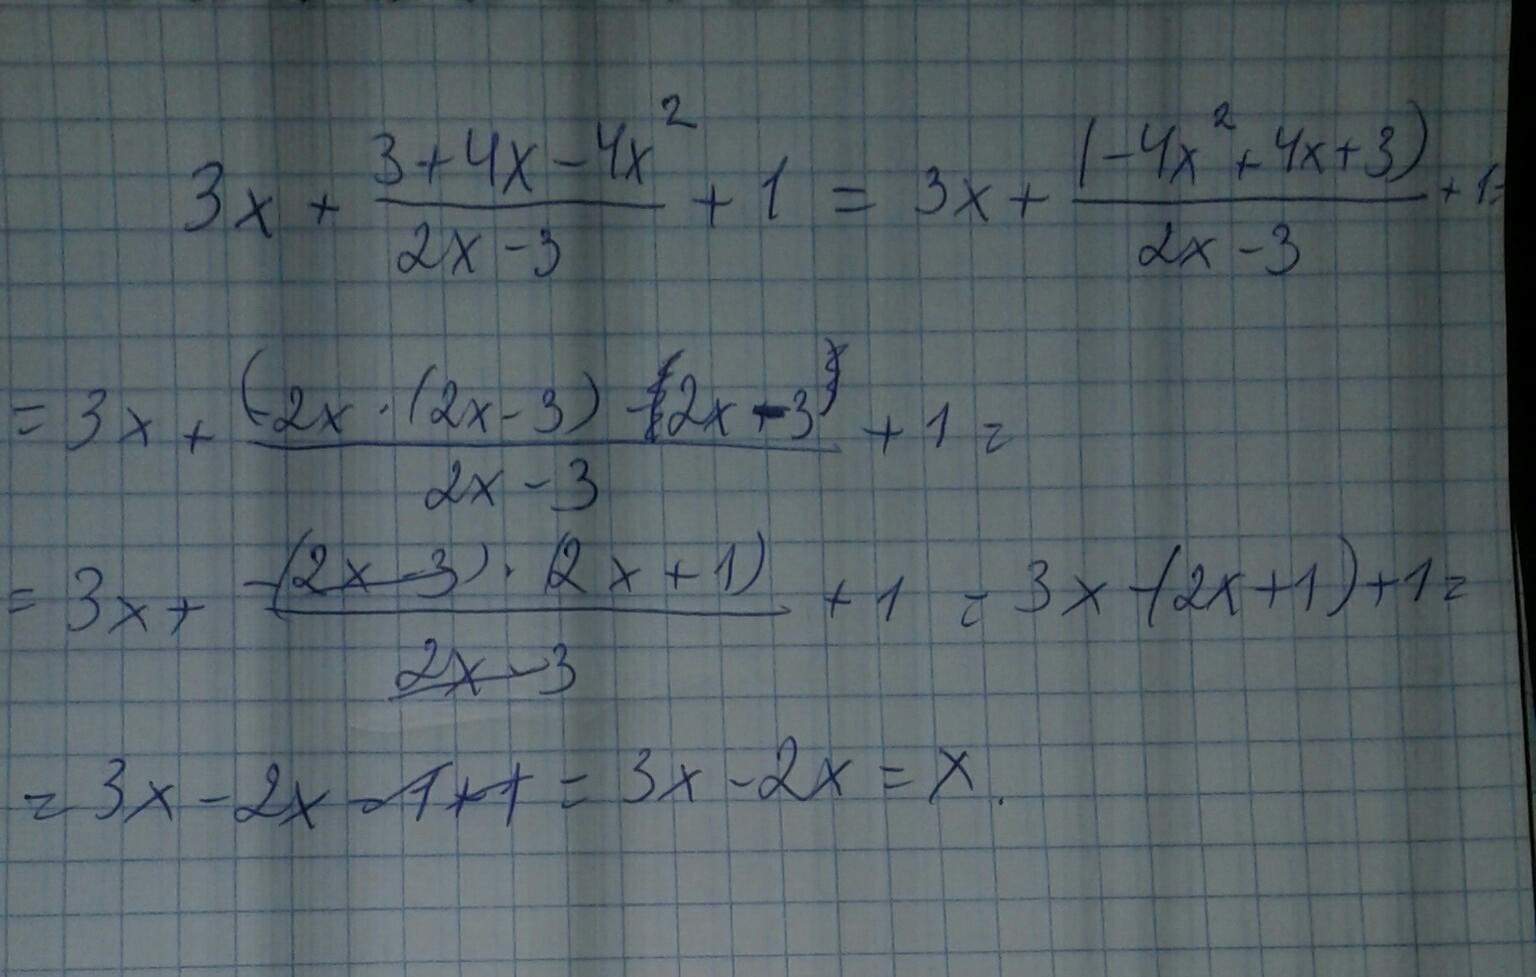 3x + (3+4x-4x²)/(2x-3) + 1 = 3x + ((-4x²+4x+3))/(2x-3) + 1 =
= 3x + (-2x·(2x-3) - (2x-3))/(2x-3) + 1 =
= 3x + (-(2x-3)·(2x+1))/(2x-3) + 1 = 3x - (2x+1) + 1 =
= 3x - 2x - 1 + 1 = 3x - 2x = x.